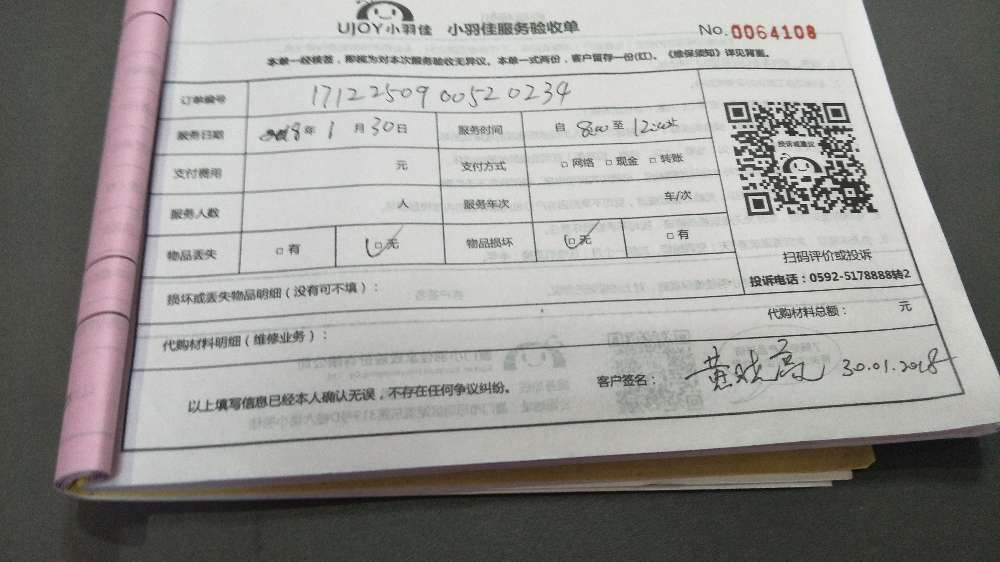 UJOY小羽佳 小羽佳服务验收单 No.0064108
本单一经核签，即视为对本次服务验收无异议。本单一式两份，客户留存一份(红)。《维保须知》详见背面。
订单编号 1712250900520234
服务日期 2018年1月30日 服务时间 自 8:00 至
支付费用 元 支付方式 □网络 □现金 □转账
服务人数 人 服务车次 车/次
物品丢失 □有 □无 物品损坏 □无 □有
投诉或建议
扫码评价或投诉
投诉电话：0592-5178888转2
损坏或丢失物品明细（没有可不填）：
代购材料明细（维修业务）： 代购材料总额： 元
以上填写信息已经本人确认无误，不存在任何争议纠纷。 客户签名： 黄晓亮 30.01.2018